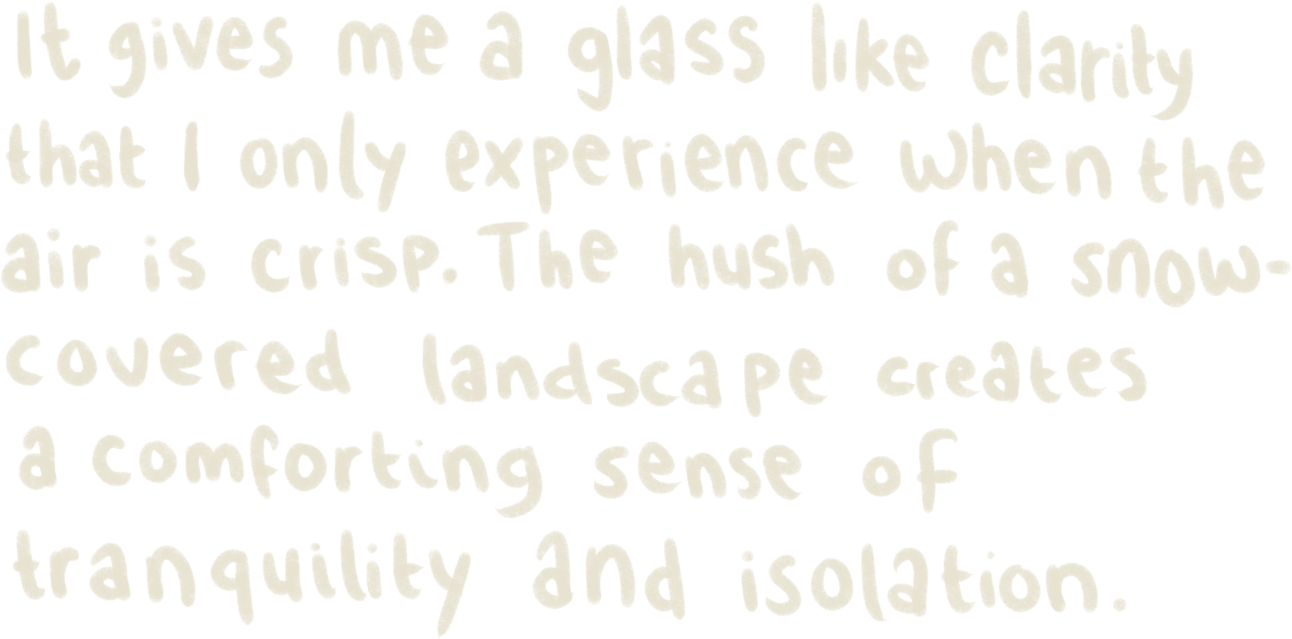 It gives me a glass like clarity
that I only experience when the
air is crisp. The hush of a snow-
covered landscape creates
a comforting sense of
tranquility and isolation.